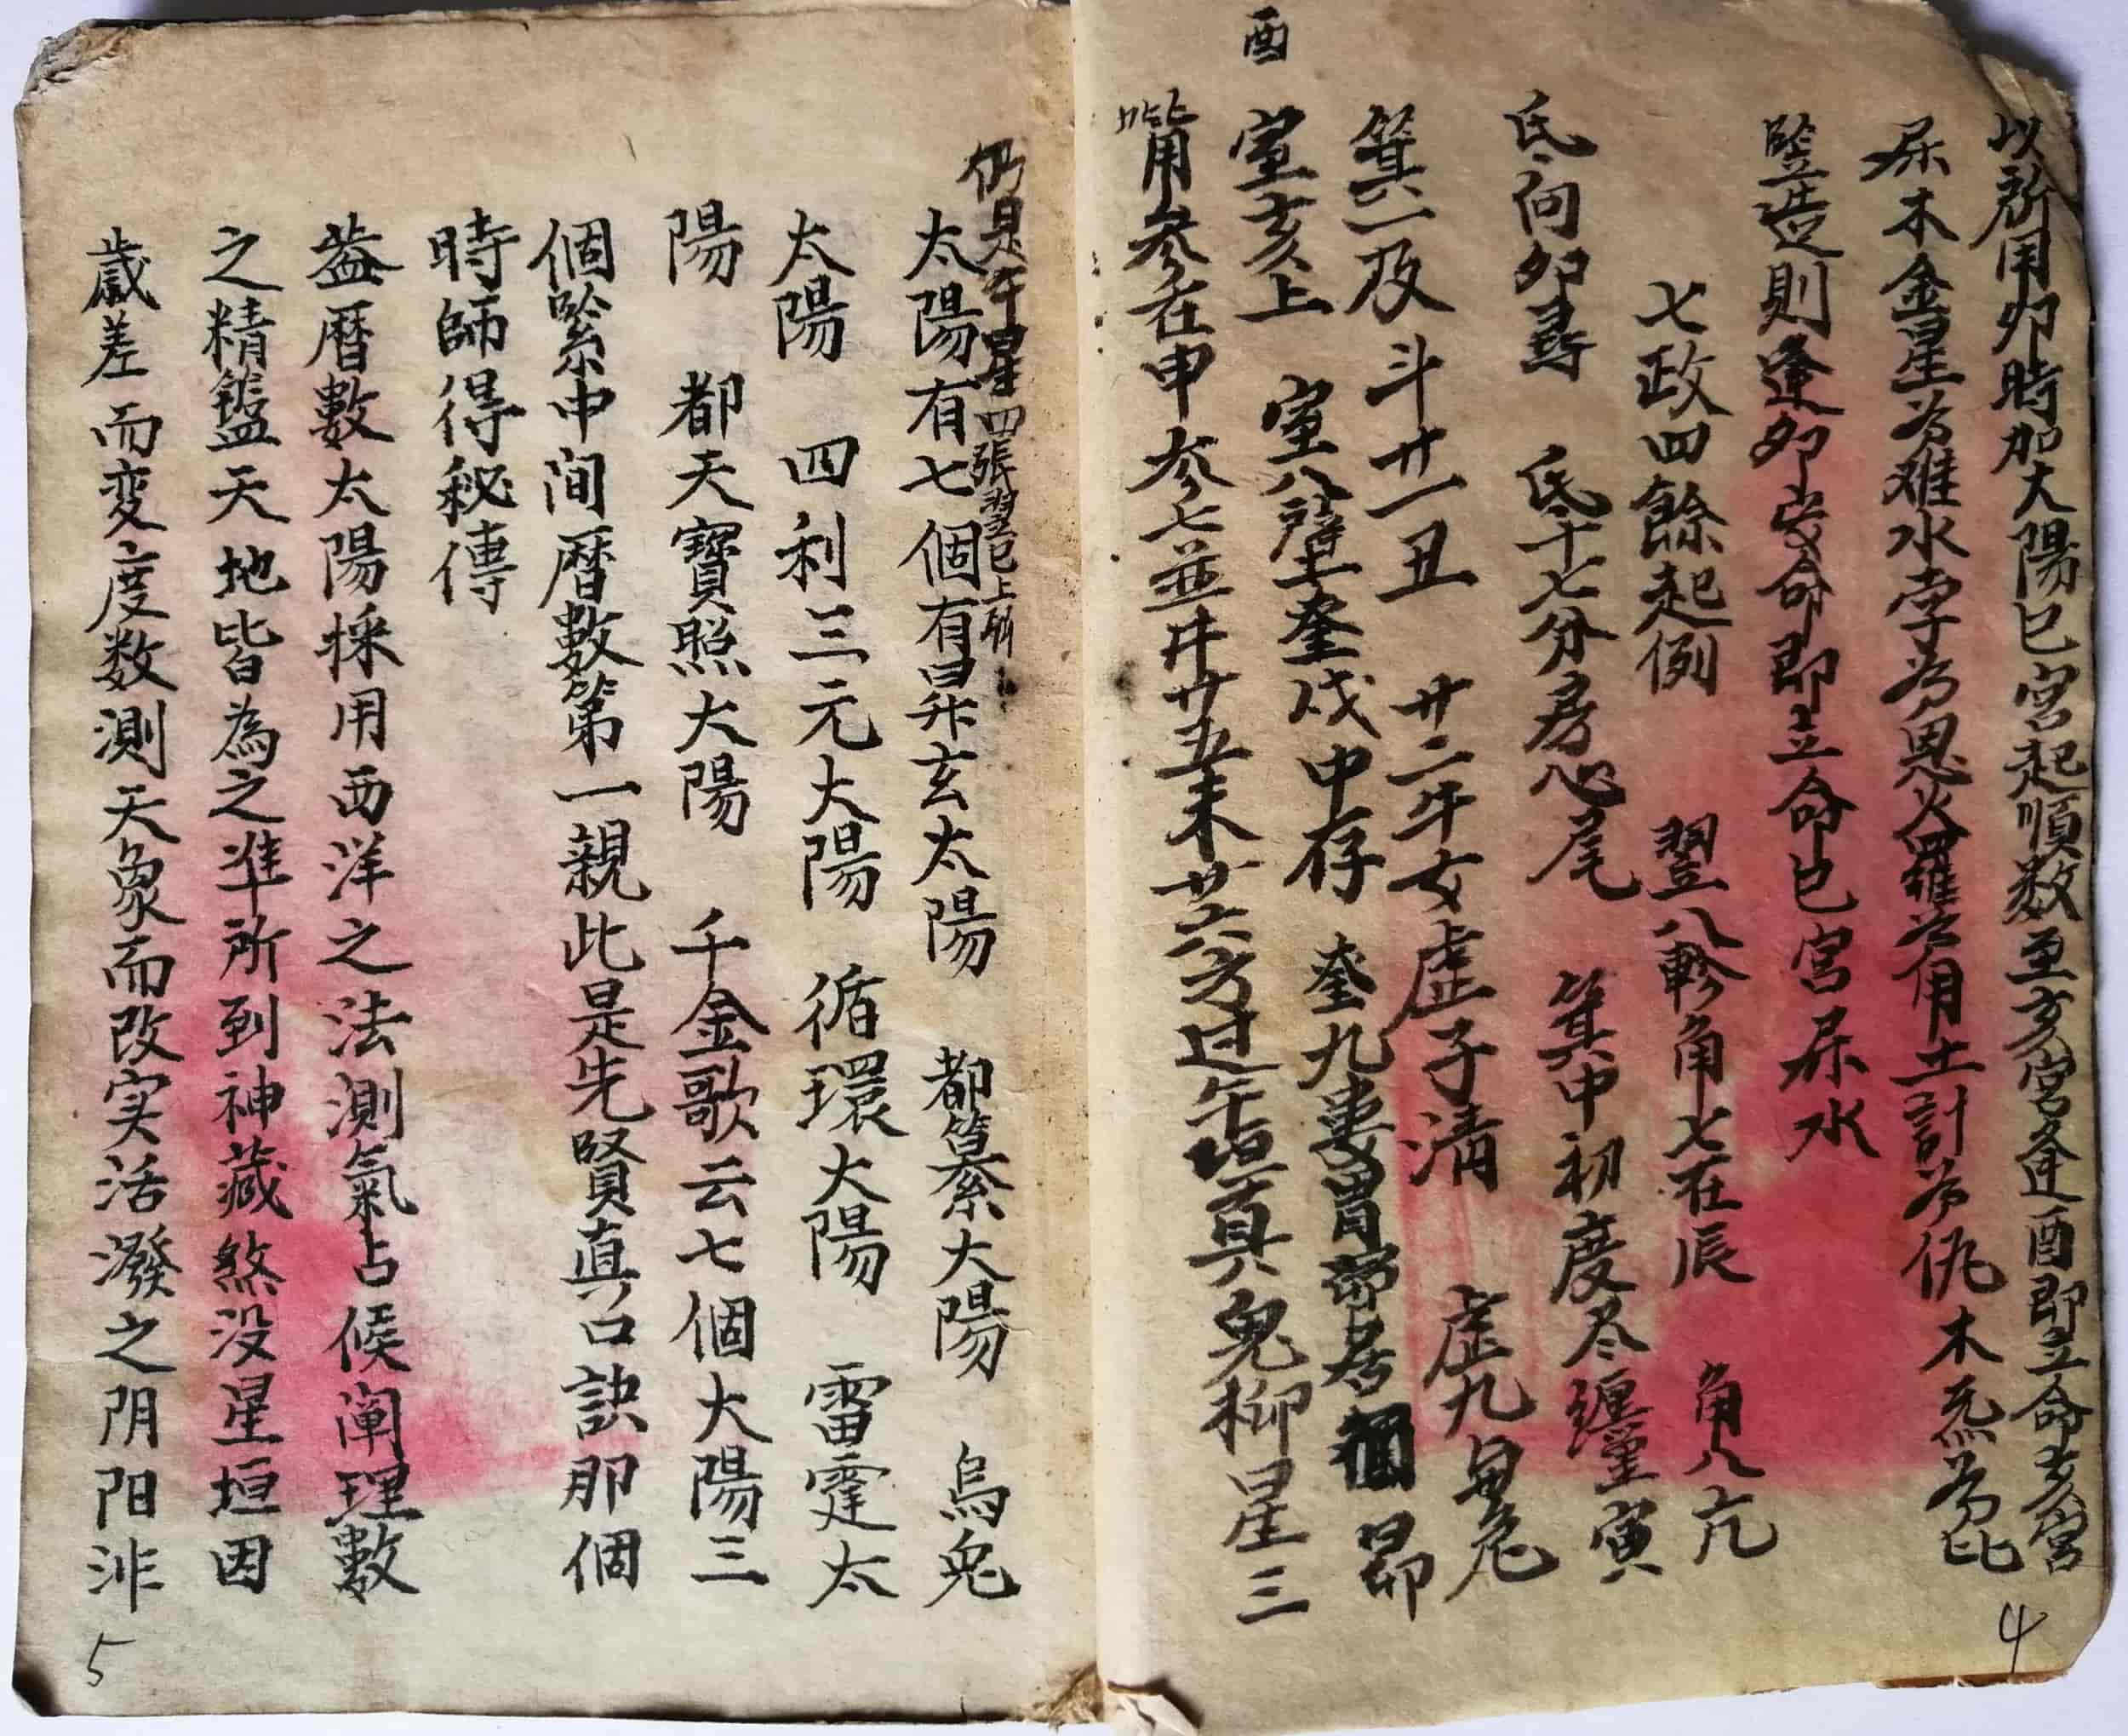 以所用卯時加大陽巳宮起順数至亥宮逢酉即立命亥宮
屎木金星为难水孛为恩火羅为用土計为仇木炁为比
竪造則逢卯安命即立命巳宮屎水
七政四餘起例 翌八軫角七在辰 角八亢
氐向卯尋 氐十七分房心尾 箕中初度尽纏寅
箕二及斗廿一丑 廿二牛女虚子清 虚九毘危
室亥上 室八壁奎戌中存 奎九婁胃昴居 昴
酉
嘴用參在申 參七並井廿五未 廿六方过午垣真 鬼柳星三
仍是午 星四張翌巳上躔
太陽有七個有昇玄太陽 都篡大陽 烏兔
太陽 四利三元大陽 循環大陽 雷霆太
陽 都天寶照大陽 千金歌云七個大陽三
個𦂳中间暦數第一親此是先賢真口訣那個
時師得秘傳
葢暦數太陽採用西洋之法測氣占候阐理數
之精盤天地皆為之準所到神藏煞没星垣因
歲差而変度数測天象而改实活潑之阴阳沣
4
5